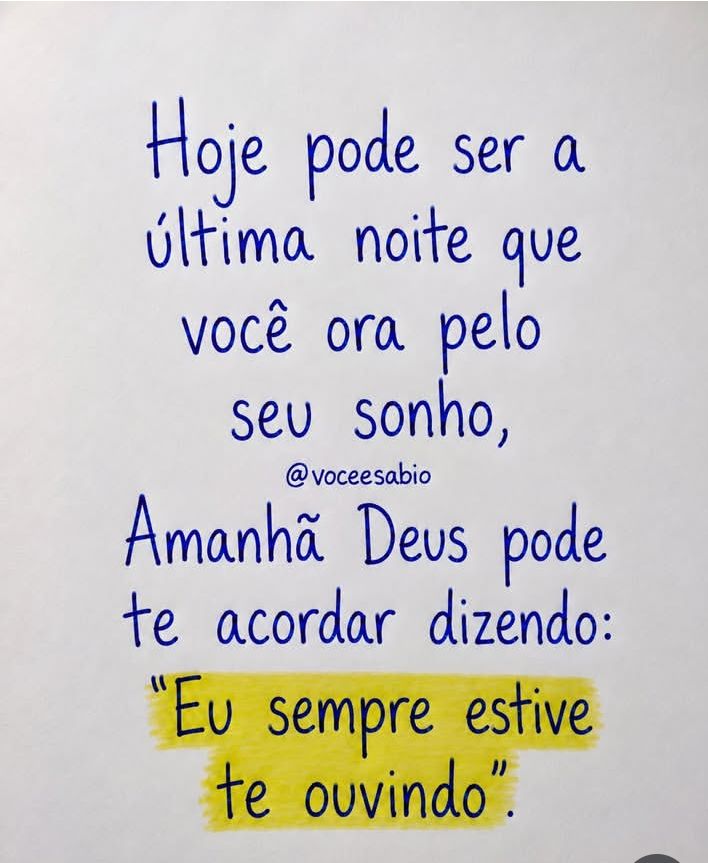 Hoje pode ser a
última noite que
você ora pelo
seu sonho,
@voceesabio
Amanhã Deus pode
te acordar dizendo:
"Eu sempre estive
te ouvindo".